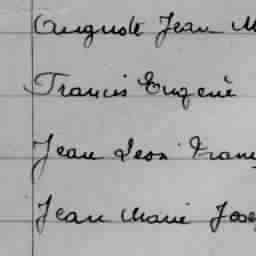 Auguste Jean M
Francis Eugène
Jean Leon Franç
Jean Marie Jose